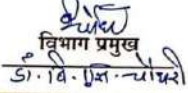 विभाग प्रमुख
डॉ. वि. एन. चौधरी